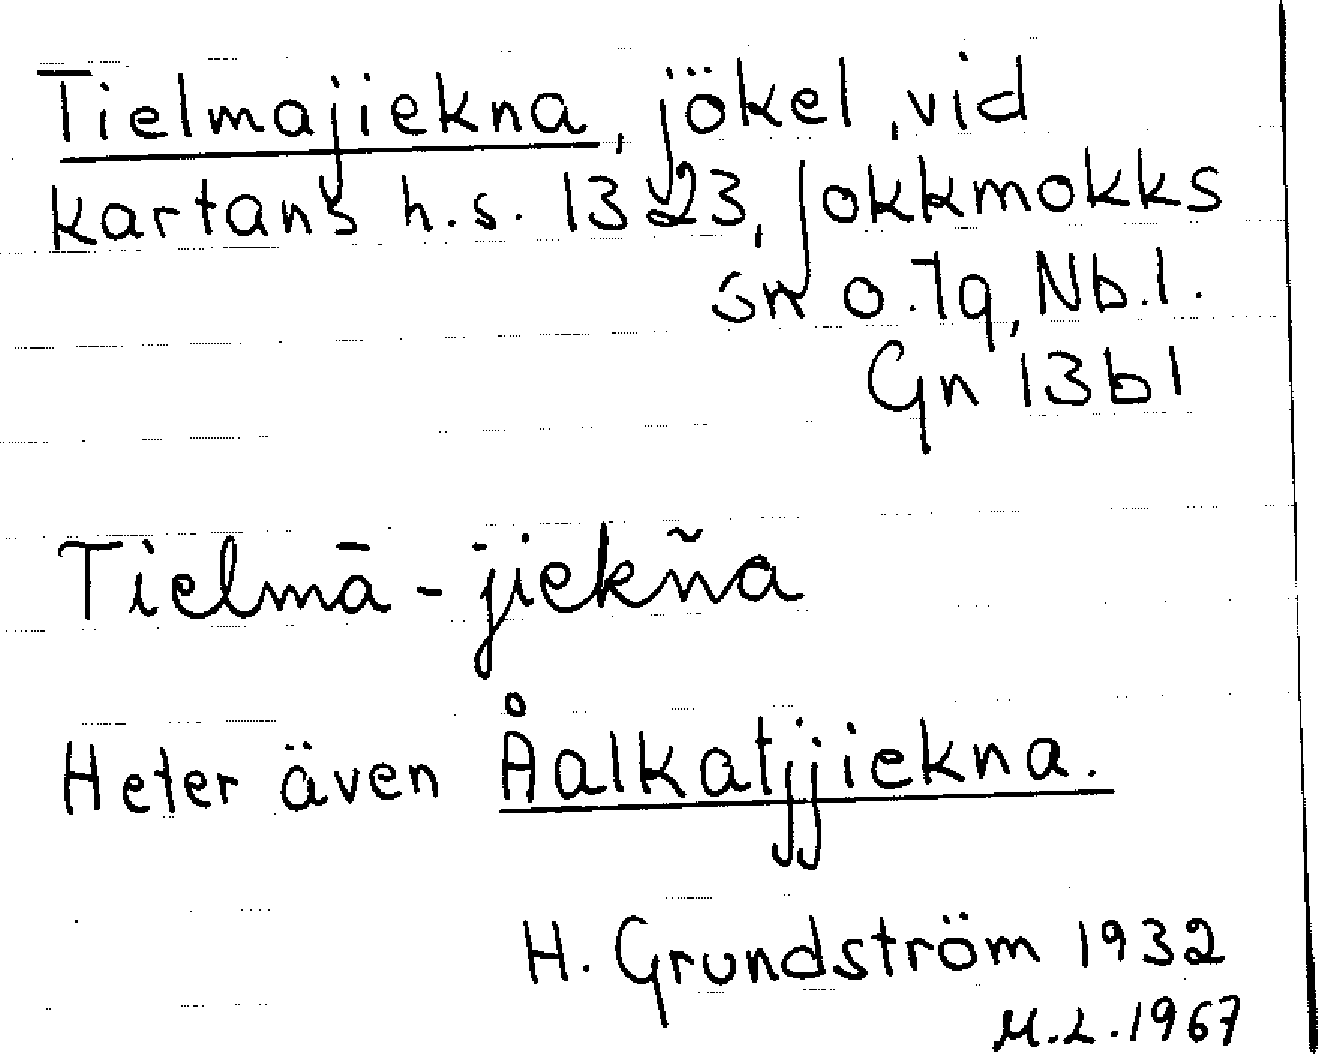 Tielmajiekna, jökel, vid
kartans h.s. 1323, Jokkmokks
sn o. lq, Nb.l.
Gn 13b1
Tielmā-jiekña
Heter även Åalkatjjiekna.
H. Grundström 1932
M.L.1967